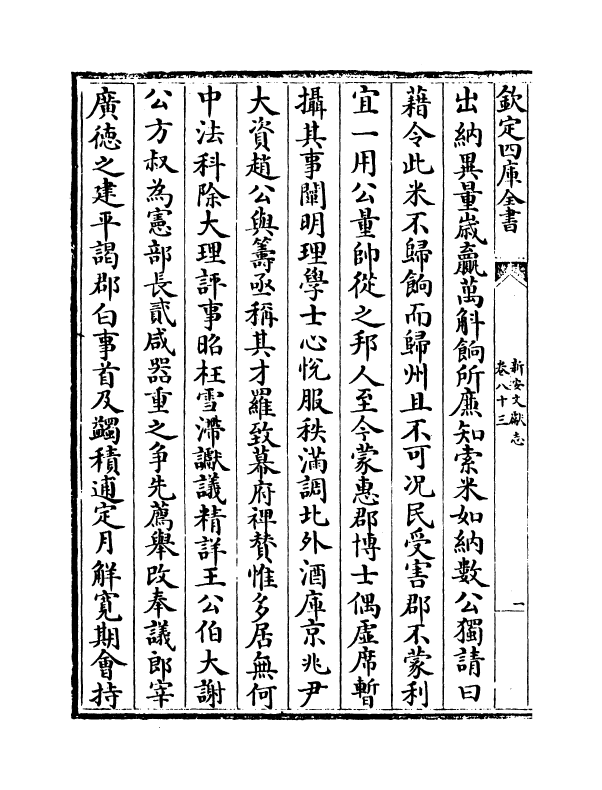 欽定四庫全書
新安文獻志
卷八十三
一
出納異量歳贏萬斛餉所廉知索米如納數公獨請曰
藉令此米不歸餉而歸州且不可况民受害郡不蒙利
宜一用公量帥從之邦人至今蒙惠郡博士偶虛席暫
攝其事闡明理學士心悅服秩滿調北外酒庫京兆尹
大資趙公與籌亟稱其才羅致幕府禆賛惟多居無何
中法科除大理評事昭枉雪滯讞議精詳王公伯大謝
公方叔為憲部長貳咸器重之争先薦舉改奉議郎宰
廣德之建平謁郡白事首及蠲積逋定月解寛期會持